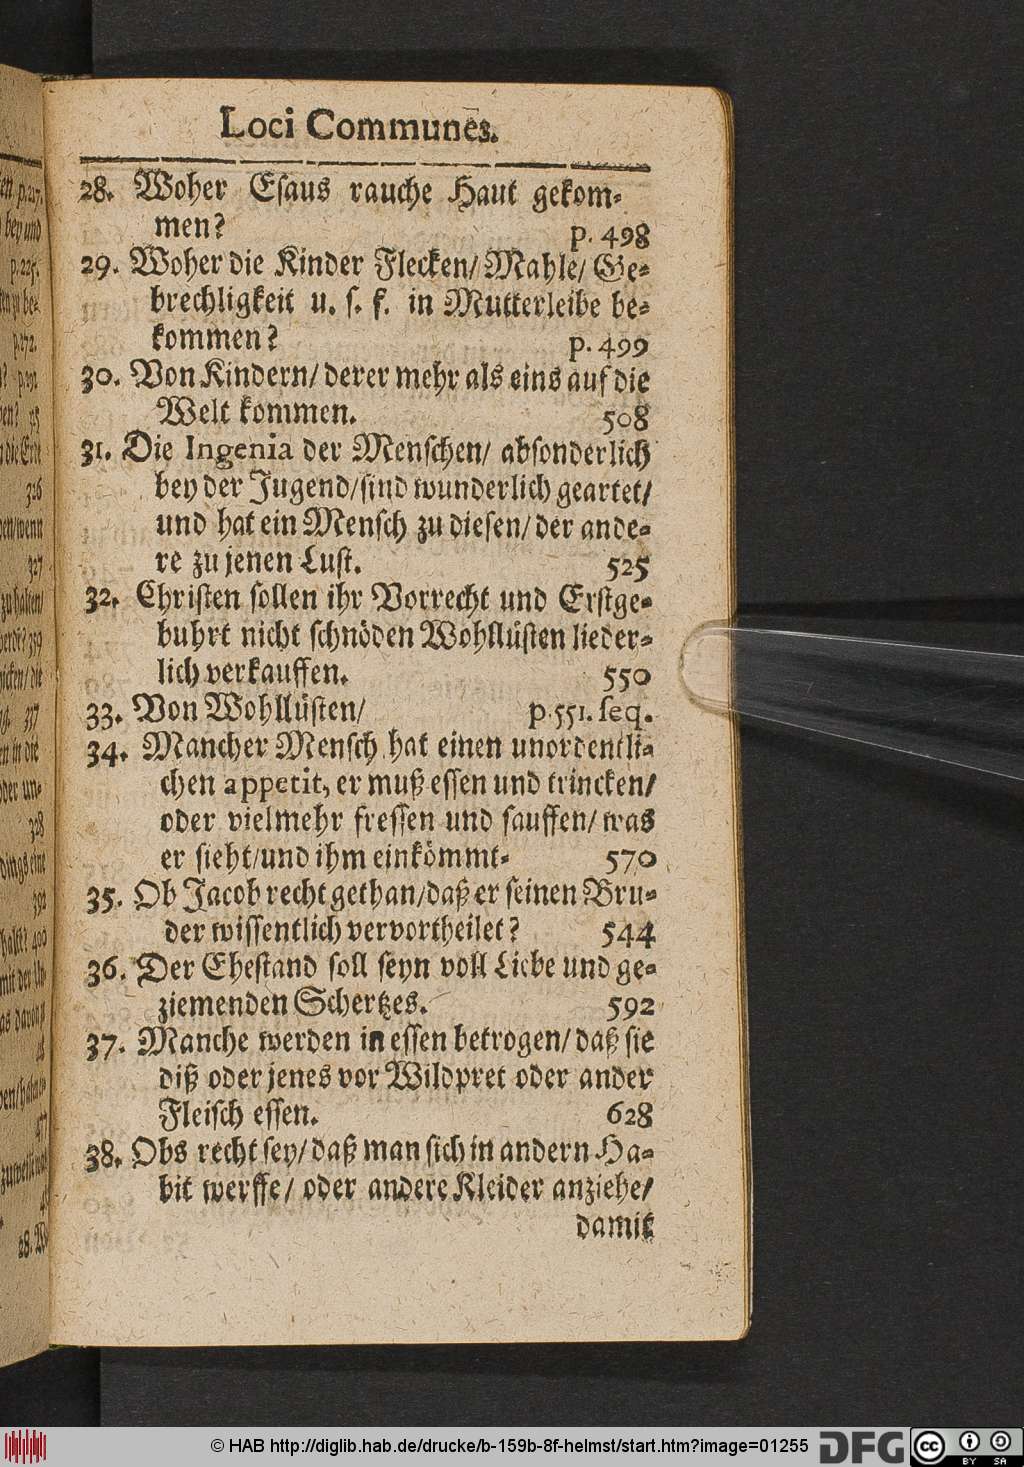 Loci Communes.
28. Woher Esaus rauche Haut gekom-
men? p. 498
29. Woher die Kinder Flecken/ Mahle/ Ge-
brechligkeit u. s. f. in Mutterleibe be-
kommen? p. 499
30. Von Kindern/ derer mehr als eins auf die
Welt kommen. 508
31. Die Ingenia der Menschen/ absonderlich
bey der Jugend/ sind wunderlich geartet/
und hat ein Mensch zu diesen/ der ande-
re zu jenen Lust. 525
32. Christen sollen ihr Vorrecht und Erstge-
buhrt nicht schnöden Wohllüsten lieder-
lich verkauffen. 550
33. Von Wohllüsten/ p. 551. seq.
34. Mancher Mensch hat einen unordentli-
chen appetit, er muß essen und trincken/
oder vielmehr fressen und sauffen/ was
er sieht/ und ihm einkömmt. 570
35. Ob Jacob recht gethan/ daß er seinen Bru-
der wissentlich vervortheilet? 544
36. Der Ehestand soll seyn voll Liebe und ge-
ziemenden Schertzes. 592
37. Manche werden in essen betrogen/ daß sie
diß oder jenes vor Wildpret oder ander
Fleisch essen. 628
38. Obs recht sey/ daß man sich in andern Ha-
bit werffe/ oder andere Kleider anziehe/
damit
p. 217.
bey und
p. 225.
p. 272.
die Erde
326
327
zu halten/
337
in die
oder un-
328
392
400
© HAB http://diglib.hab.de/drucke/b-159b-8f-helmst/start.htm?image=01255
DFG
cc BY SA